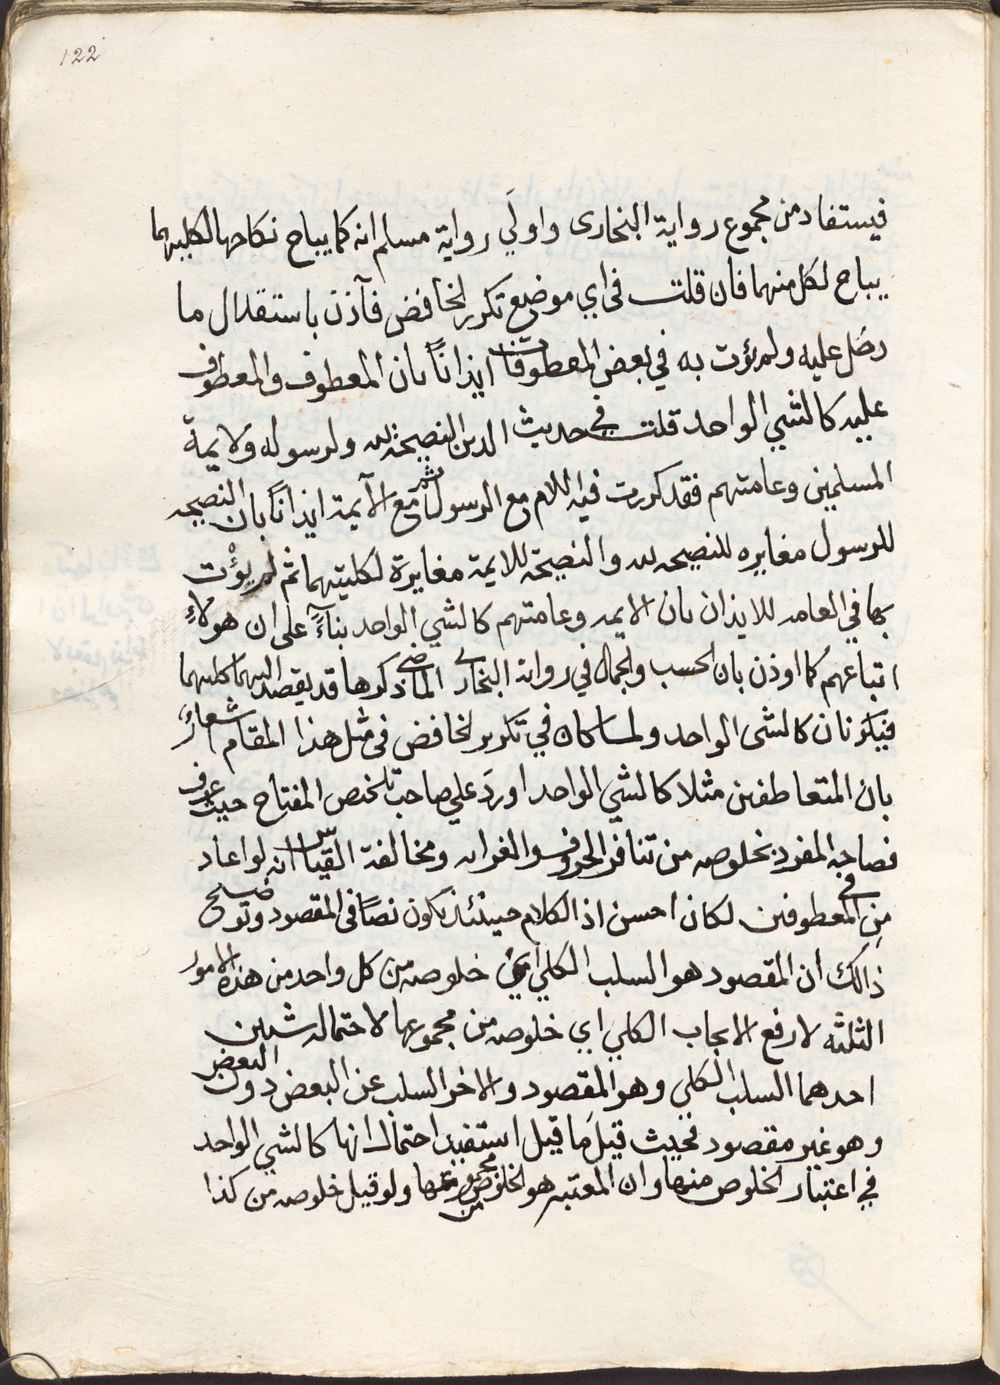 122
فيستفاد من مجموع رواية البخارى واولَي رواية مسلم انه كما يباح نكاحها لكليهما
يباح لكل منهما فان قلت فى اي موضع تكرر الخافض فآذن باستقلال ما
دخل عليه ولم يؤت به في بعض المعطوفات ايذانًا بان المعطوف والمعطوف
عليه كالشي الواحد قلت في حديث الدين النصيحة لله ولرسوله ولايمة
المسلمين وعامتهم فقد كررت فيه اللام مع الرسول ثم مع الآيمة ايذانًا بان النصيحه
للرسول مغايره للنصيحه لله والنصيحة للايمة مغايرة لكليتيهما ثم لم يؤْت
بها في العامه للايذان بان الايمه وعامتهم كالشي الواحد بناءً على ان هولاءِ
اتباعهم كما اوذن بان الحسب والجمال في رواية البخارى الماضى ذكرها قد يقصد اليهما كليهما
فيكونان كالشى الواحد ولما كان في تكرير الخافض فى مثل هذا المقام اشعار
بان المتعاطفين مثلا كالشي الواحد اوردَ علي صاحب تلخيص المفتاح حيث عرف
فصاحة المفرد بخلوصه من تنافر الحروف والغرابه ومخالفة القياس انه لو اعاد
مِن في المعطوفين لكان احسن اذ الكلام حينئذ يكون نصًا فى المقصود وتوضيح
ذالك ان المقصود هو السلب الكلي اي خلوصه من كل واحد من هذه الامور
الثلثه لا رفع الايجاب الكلي اي خلوصه من مجموعها لاحتماله شيئين
احدهما السلب الكلي وهو المقصود والاخر السلب عن البعض دون البعض
وهو غير مقصود فحيث قيل ما قيل استفيد احتمال انها كالشي الواحد
في اعتبار الخلوص منها وان المعتبر هو الخلوص من مجموعها ولو قيل خلوصه من كذا